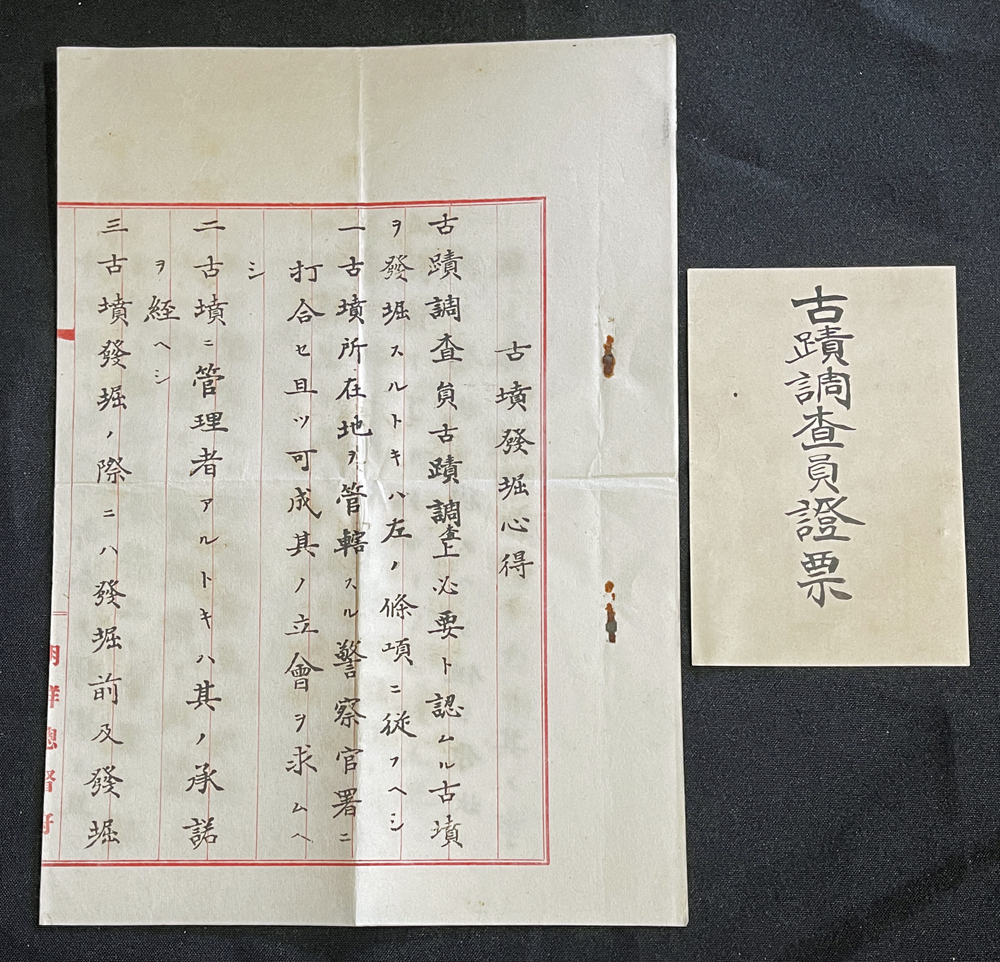 古墳發堀心得
古蹟調査員古蹟調査上必要ト認ムル古墳
ヲ發堀スルトキハ左ノ條項ニ従フヘシ
一古墳所在地ヲ管轄スル警察官署ニ
打合セ且ツ可成其ノ立會ヲ求ムヘ
シ
二古墳ニ管理者アルトキハ其ノ承諾
ヲ經ヘシ
三古墳發堀ノ際ニハ發堀前及發堀
朝鮮總督府
古蹟調査員證票